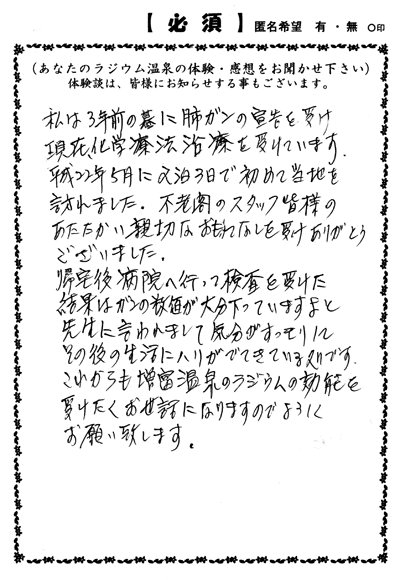 【必須】 匿名希望 有・無 ○印
(あなたのラジウム温泉の体験・感想をお聞かせ下さい)
体験談は、皆様にお知らせする事もございます。
私は3年前の暮に肺ガンの宣告を受け
現在、化学療法治療を受けています。
平成22年5月に2泊3日で初めて当地を
訪れました。不老閣のスタッフ皆様の
あたたかい親切なおもてなしを受けありがとう
ございました。
帰宅後病院へ行って検査を受けた
結果はガンの数値が大分下っていますよと
先生に言われまして気分がすっきりして
その後の生活にハリがでてきている次第です。
これからも増富温泉のラジウムの効能を
受けたくお世話になりますのでよろしく
お願い致します。